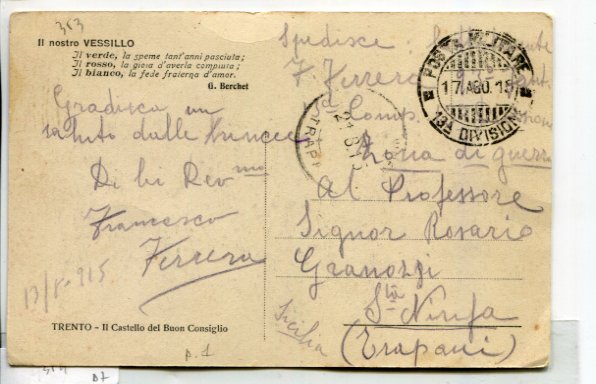 353
Il nostro VESSILLO
Il verde, la speme tant'anni pasciuta;
Il rosso, la gioia d'averla compiuta;
Il bianco, la fede fraterna d'amor.
G. Berchet
Gradisca un
saluto dalle trincee
Di lei Dev mo
Francesco
Ferrera
13/8-915
TRENTO - Il Castello del Buon Consiglio
p. 1
354
B7
Spedisce:
F. Ferrera
Comp.
Zona di guerra
POSTA MILITARE
17.AGO.15
13A DIVISIONE
TRAPANI
Al Professore
Signor Rosario
Granozzi
Sta Ninfa
(Trapani)
Sicilia